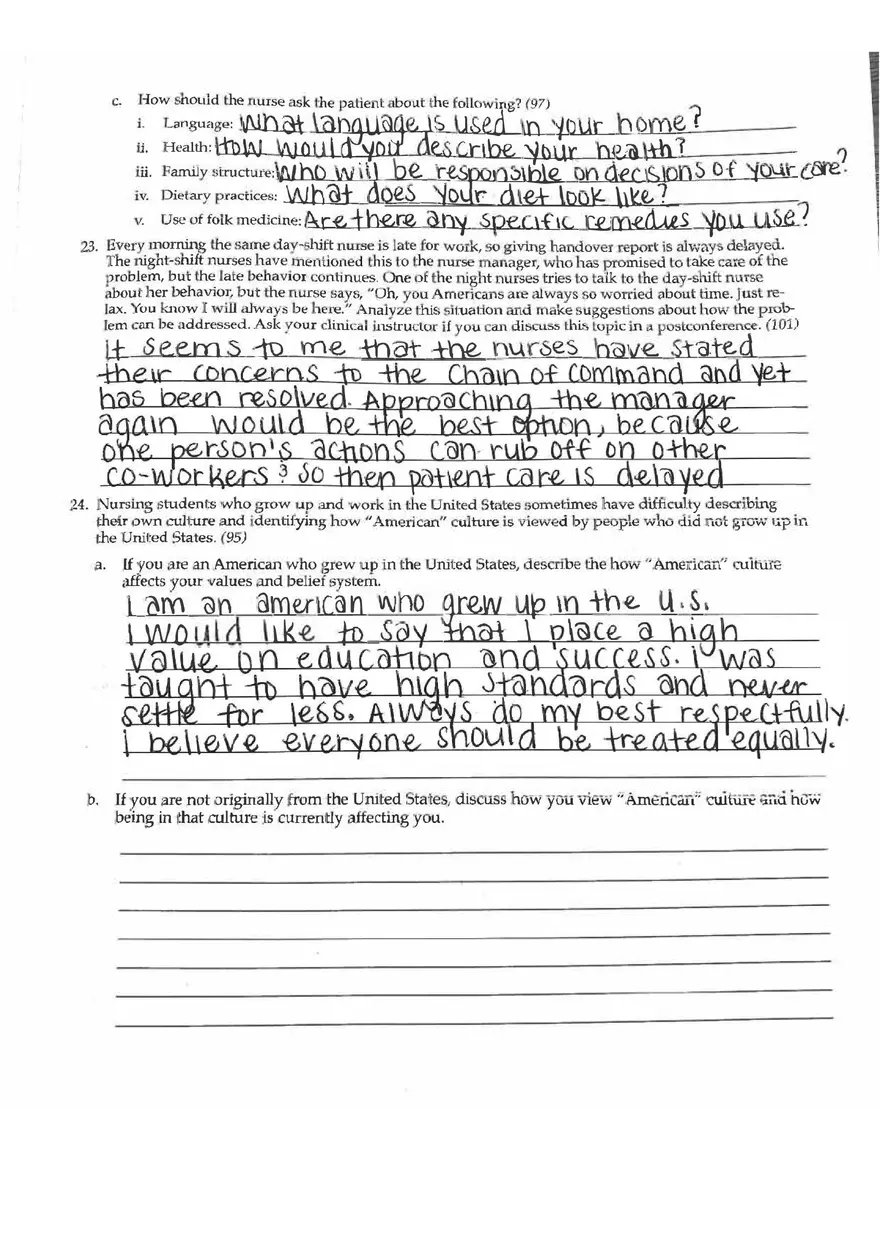 c. How should the nurse ask the patient about the following? (97)
i. Language: What language is used in your home?
ii. Health: How would you describe your health?
iii. Family structure: Who will be responsible on decisions of your care?
iv. Dietary practices: What does your diet look like?
v. Use of folk medicine: Are there any specific remedies you use?
23. Every morning the same day-shift nurse is late for work, so giving handover report is always delayed.
The night-shift nurses have mentioned this to the nurse manager, who has promised to take care of the
problem, but the late behavior continues. One of the night nurses tries to talk to the day-shift nurse
about her behavior, but the nurse says, "Oh, you Americans are always so worried about time. Just re-
lax. You know I will always be here." Analyze this situation and make suggestions about how the prob-
lem can be addressed. Ask your clinical instructor if you can discuss this topic in a postconference. (101)
it seems to me that the nurses have stated
their concerns to the Chain of command and yet
has been resolved. Approaching the manager
again would be the best option, because
one person's actions can rub off on other
co-workers & so then patient care is delayed
24. Nursing students who grow up and work in the United States sometimes have difficulty describing
their own culture and identifying how "American" culture is viewed by people who did not grow up in
the United States. (95)
a. If you are an American who grew up in the United States, describe the how "American" culture
affects your values and belief system.
I am an american who grew up in the U.S.
I would like to say that I place a high
value on education and success. i was
taught to have high standards and never
settle for less. Always do my best respectfully.
i believe everyone should be treated equally.
b. If you are not originally from the United States, discuss how you view "American" culture and how
being in that culture is currently affecting you.